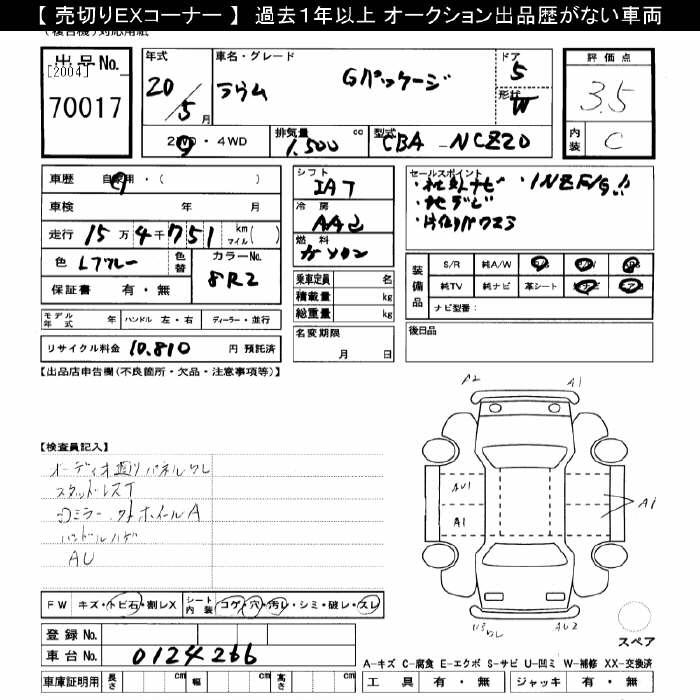 【 売切りEXコーナー 】 過去1年以上 オークション出品歴がない車両
(複合機)対応用紙
出 品 No.
[2004]
70017
年式
20/5 月
車名・グレード
ラウム Gパッケージ
ドア
5
形状
W
評 価 点
3.5
内装
C
2WD・4WD
排気量
1,500 cc
型式
CBA - NCZ20
車歴 自家用・( )
車検 年 月
走行 15 万 4 千 751 km マイル( )
色 Lブルー
色替
カラーNo.
8R2
保証書 有・無
シフト
IAT
冷 房
AAC
燃 料
ガソリン
乗車定員 名
積載量 kg
総重量 kg
セールスポイント
・社外ナビ ・1NZ F/G!!
・地デジ
装備品
S/R 純A/W P/S P/W
純TV 純ナビ 革シート
ナビ型番:
モデル年式 年 ハンドル 左・右 ディーラー・並行
リサイクル料金 10,810 円 預託済
名変期限
月 日
後日品
【出品店申告欄(不良箇所・欠品・注意事項等)】
A2 A1
【検査員記入】
オーディオ廻りパネルワレ
スタッドレスT
ハンドルハゲ
AU
AU1
A1
A1
ワレ
AU2
FW キズ・トビ石・割レX
シート内装 コゲ・穴・汚レ・シミ・破レ・スレ
登 録 No.
車 台 No. 0124266
スペア
A-キズ C-腐食 E-エクボ S-サビ U-凹ミ W-補修 XX-交換済
車庫証明用 長さ cm 幅 cm 高さ cm
工 具 有・無 ジャッキ 有・無